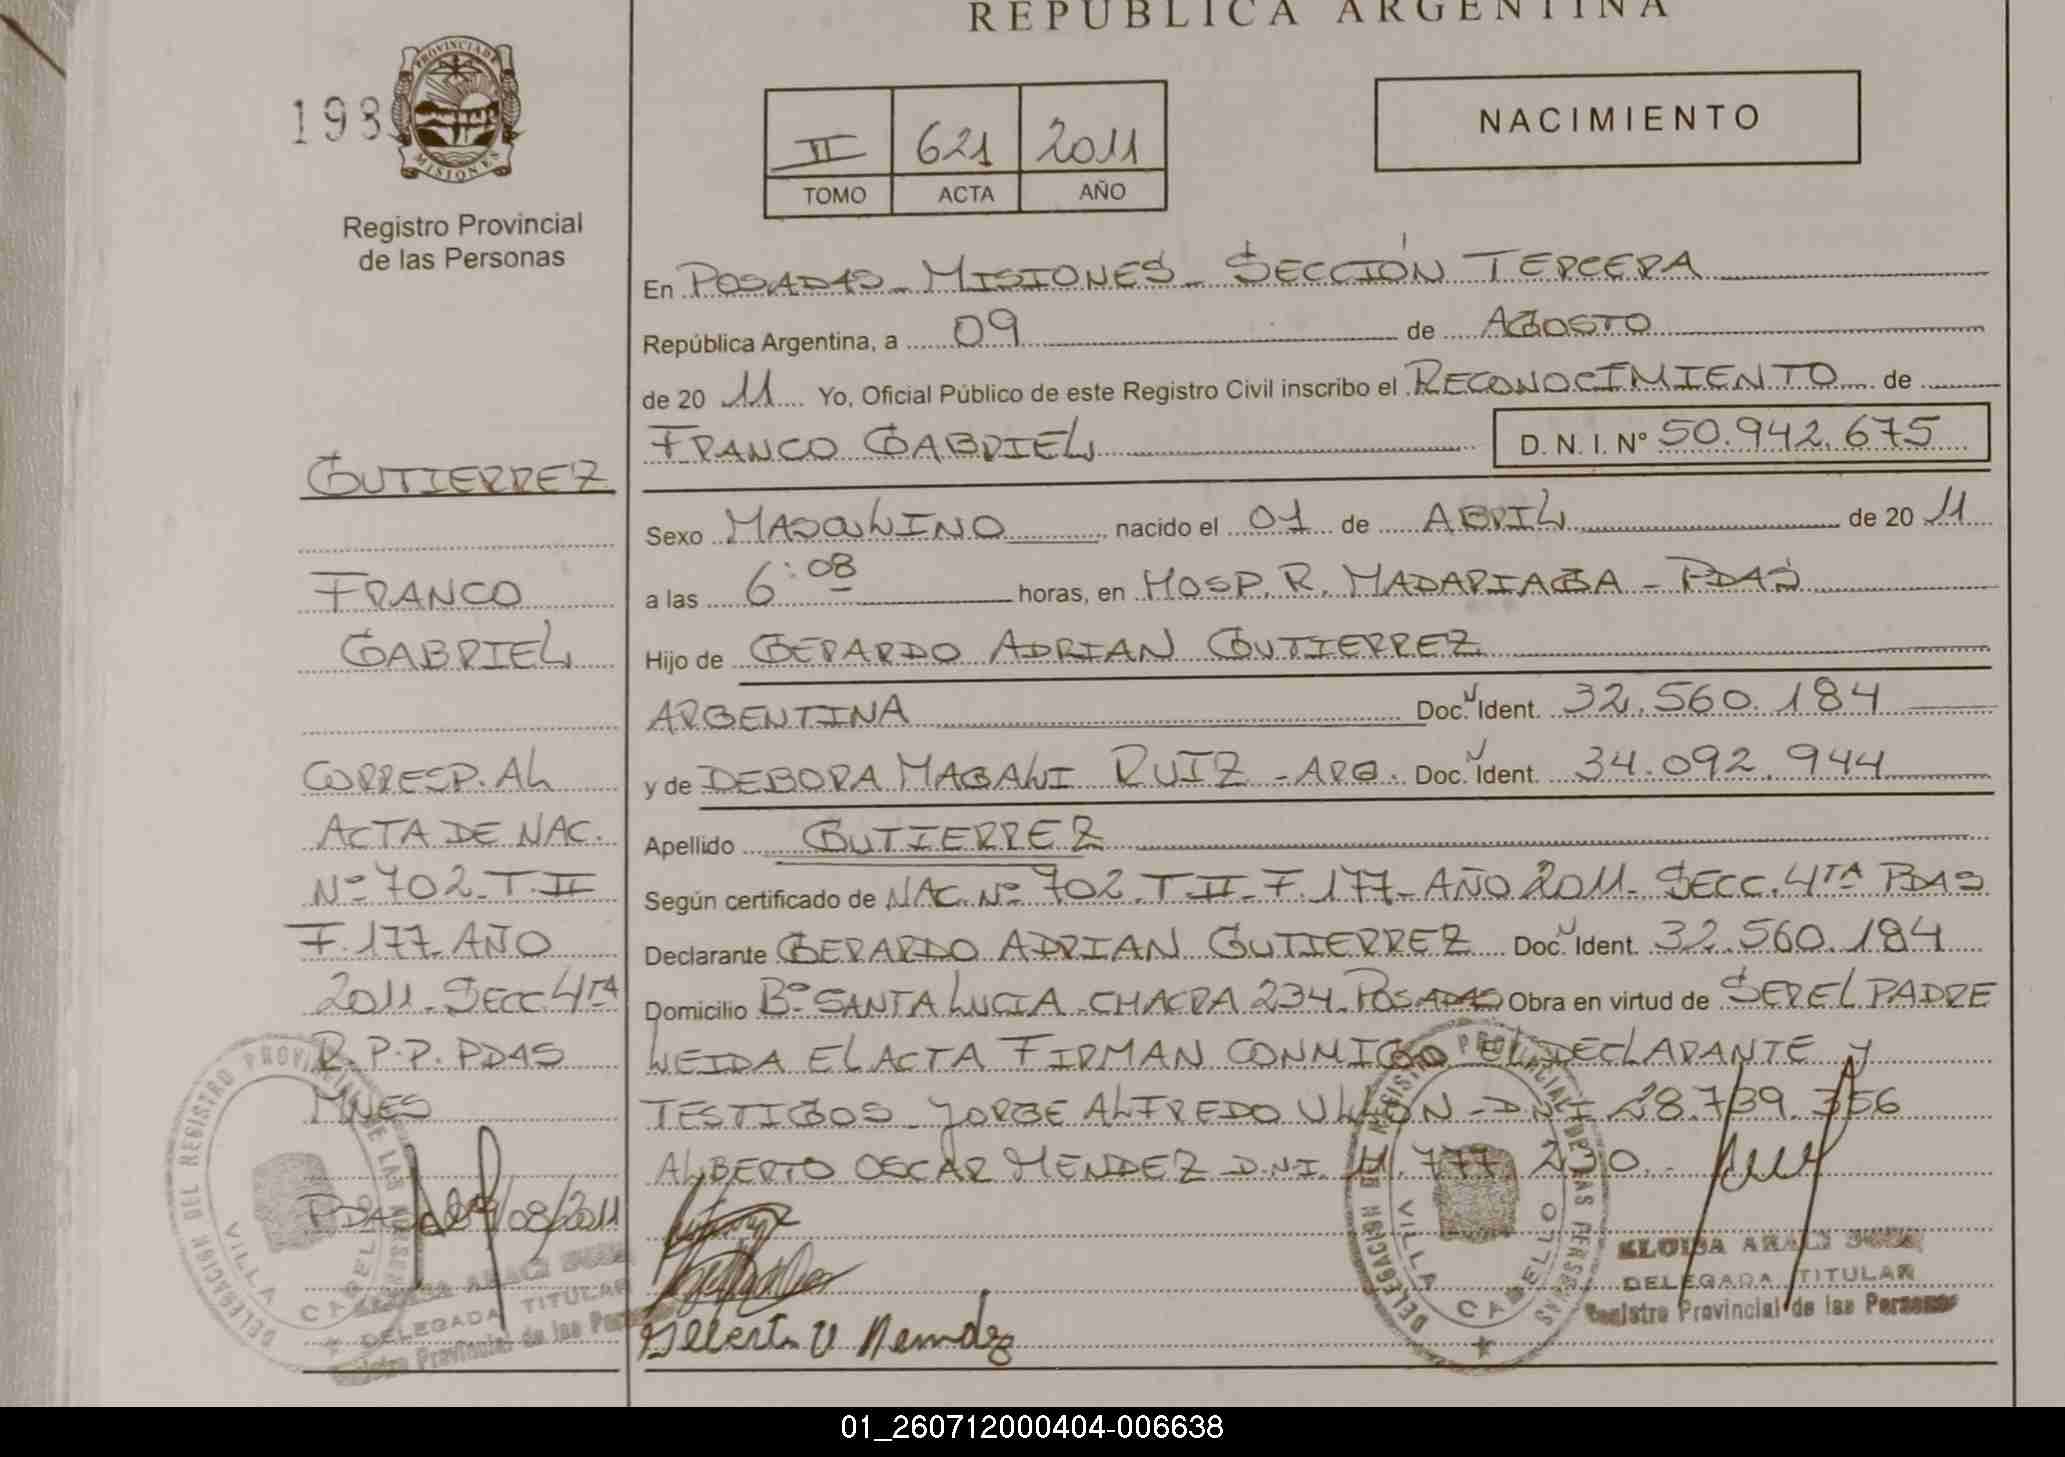 REPÚBLICA ARGENTINA
193
PROVINCIA DE MISIONES
Registro Provincial
de las Personas
II 621 2011
TOMO ACTA AÑO
NACIMIENTO
En POSADAS - MISIONES - SECCIÓN TERCERA
República Argentina, a 09 de AGOSTO
de 20 11 Yo, Oficial Público de este Registro Civil inscribo el RECONOCIMIENTO de
FRANCO GABRIEL D. N. I. Nº 50.942.675
Sexo MASCULINO, nacido el 01 de ABRIL de 20 11
a las 6:08 horas, en HOSP. R. MADARIAGA - PDAS
Hijo de GERARDO ADRIAN GUTIERREZ
ARGENTINA Doc. Ident. 32.560.184
y de DEBORA MAGALI RUIZ - ARG. Doc. Ident. 34.092.944
Apellido GUTIERREZ
Según certificado de NAC. Nº 702 - T. II - F. 177 - AÑO 2011 - SECC. 4TA PDAS
Declarante GERARDO ADRIAN GUTIERREZ Doc. Ident. 32.560.184
Domicilio Bº SANTA LUCIA - CHACRA 234 - POSADAS Obra en virtud de SER EL PADRE
LEIDA EL ACTA FIRMAN CONMIGO EL DECLARANTE Y
TESTIGOS - JORGE ALFREDO - DNI 28.739.356
ALBERTO OSCAR MENDEZ D.N.I. 11.777.230.
GUTIERREZ
FRANCO
GABRIEL
CORRESP. AL
ACTA DE NAC.
Nº 702 - T. II
F. 177 AÑO
2011 - SECC. 4TA
R.P.P. PDAS
MNES
PDAS 09/08/2011
DELEGACION DEL REGISTRO PROVINCIAL DE LAS PERSONAS
VILLA CABELLO
DELEGADA TITULAR
Registro Provincial de las Personas
DELEGACION DEL REGISTRO PROVINCIAL DE LAS PERSONAS
VILLA CABELLO
DELEGADA TITULAR
Registro Provincial de las Personas
01_260712000404-006638